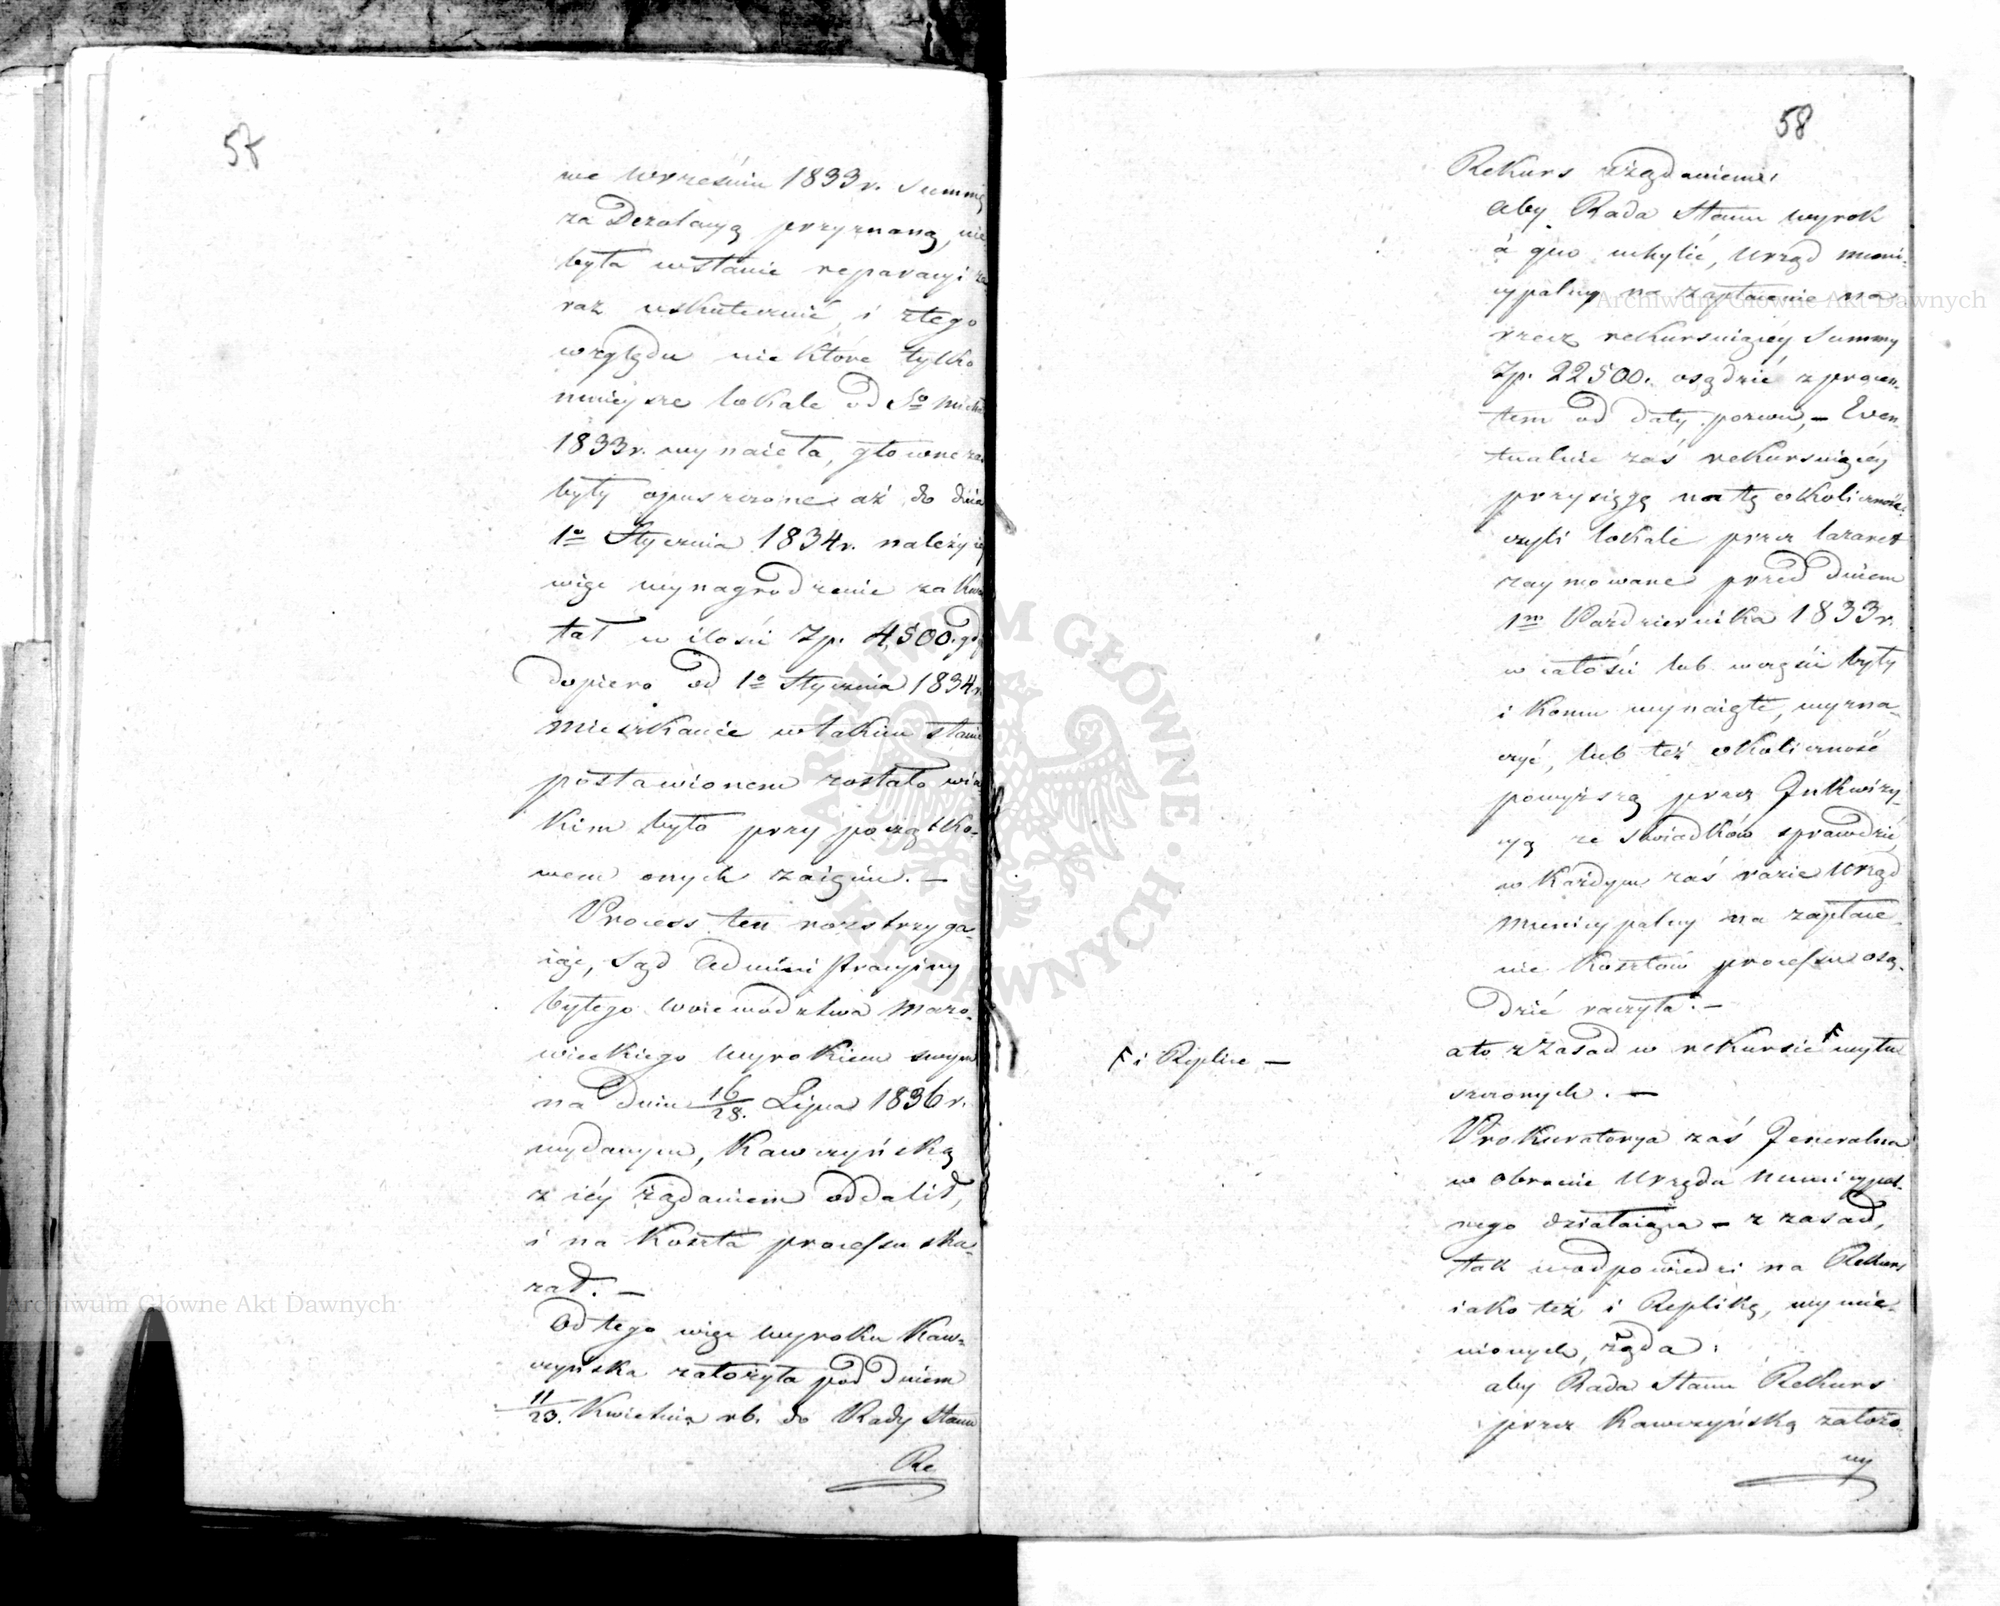 57
we wrześniu 1833 r. Summę
za Dezolacyą przyznaną, nie
była wstanie reparacyi za
raz uskutecznić, i ztego
względu nie które tylko
mnieysze lokale od So Micha
1833 r. wynaięła, główne zaś
były opuszczone aż do dnia
1o Stycznia 1834 r. należy iey
więc wynagrodzenie za Kwar
tał w ilości Zp. 4,500. gdy
dopiero od 1o Stycznia 1834 r.
Mieszkanie wtakim stanie
postawionem zostało wia
kim było przy początko-
wem onych zaięciu. —
Process ten rozstrzyga-
iąc, Sąd Administracyiny
byłego Woiewództwa Mazo-
wieckiego Wyrokiem swym
na dniu 16/28. Lipca 1836 r.
wydanym, Kawczyńską
z iéy żądaniem oddalił,
i na Koszta processu ska-
zał. —
Od tego więc Wyroku Kaw-
czyńska założyła pod dniem
11/23. Kwietnia rb. do Rady Stanu
Re
58
Rekurs zżądaniem:
aby Rada Stanu wyrok
à quo uchylić, Urząd muni-
cypalny na zapłacenie na
rzecz rekursuiącéy Summy
Zp. 22500. osądzić z procen-
tem od daty pozwu, — Even-
tualnie zaś rekursuiącéy
przysięgę na tę okoliczność:
czyli lokale przez lazaret
zaymowane przed dniem
1m Października 1833 r.
w całości lub części były
i komu wynaięte, wyzna-
czyć, lub też okoliczność
powyższą przez Inkwizy-
cyą ze Swiadków sprawdzić,
w Każdym zaś razie Urząd
Municypalny na zapłace-
nie Kosztów processu osą-
dzić raczyła. —
a to z Zasad w rekursie F wyłu
szczonych. —
F i Replice —
Prokuratorya zaś Jeneralna
w obronie Urzędu municypal-
nego działaiąca — z zasad,
tak wodpowiedzi na Rekurs
iako też i Replikę, wymie-
nionych, żąda:
aby Rada Stanu Rekurs
przez Kawczyńską założo-
ny
Archiwum Główne Akt Dawnych
Archiwum Główne Akt Dawnych
ARCHIWUM GŁÓWNE · AKT DAWNYCH ·